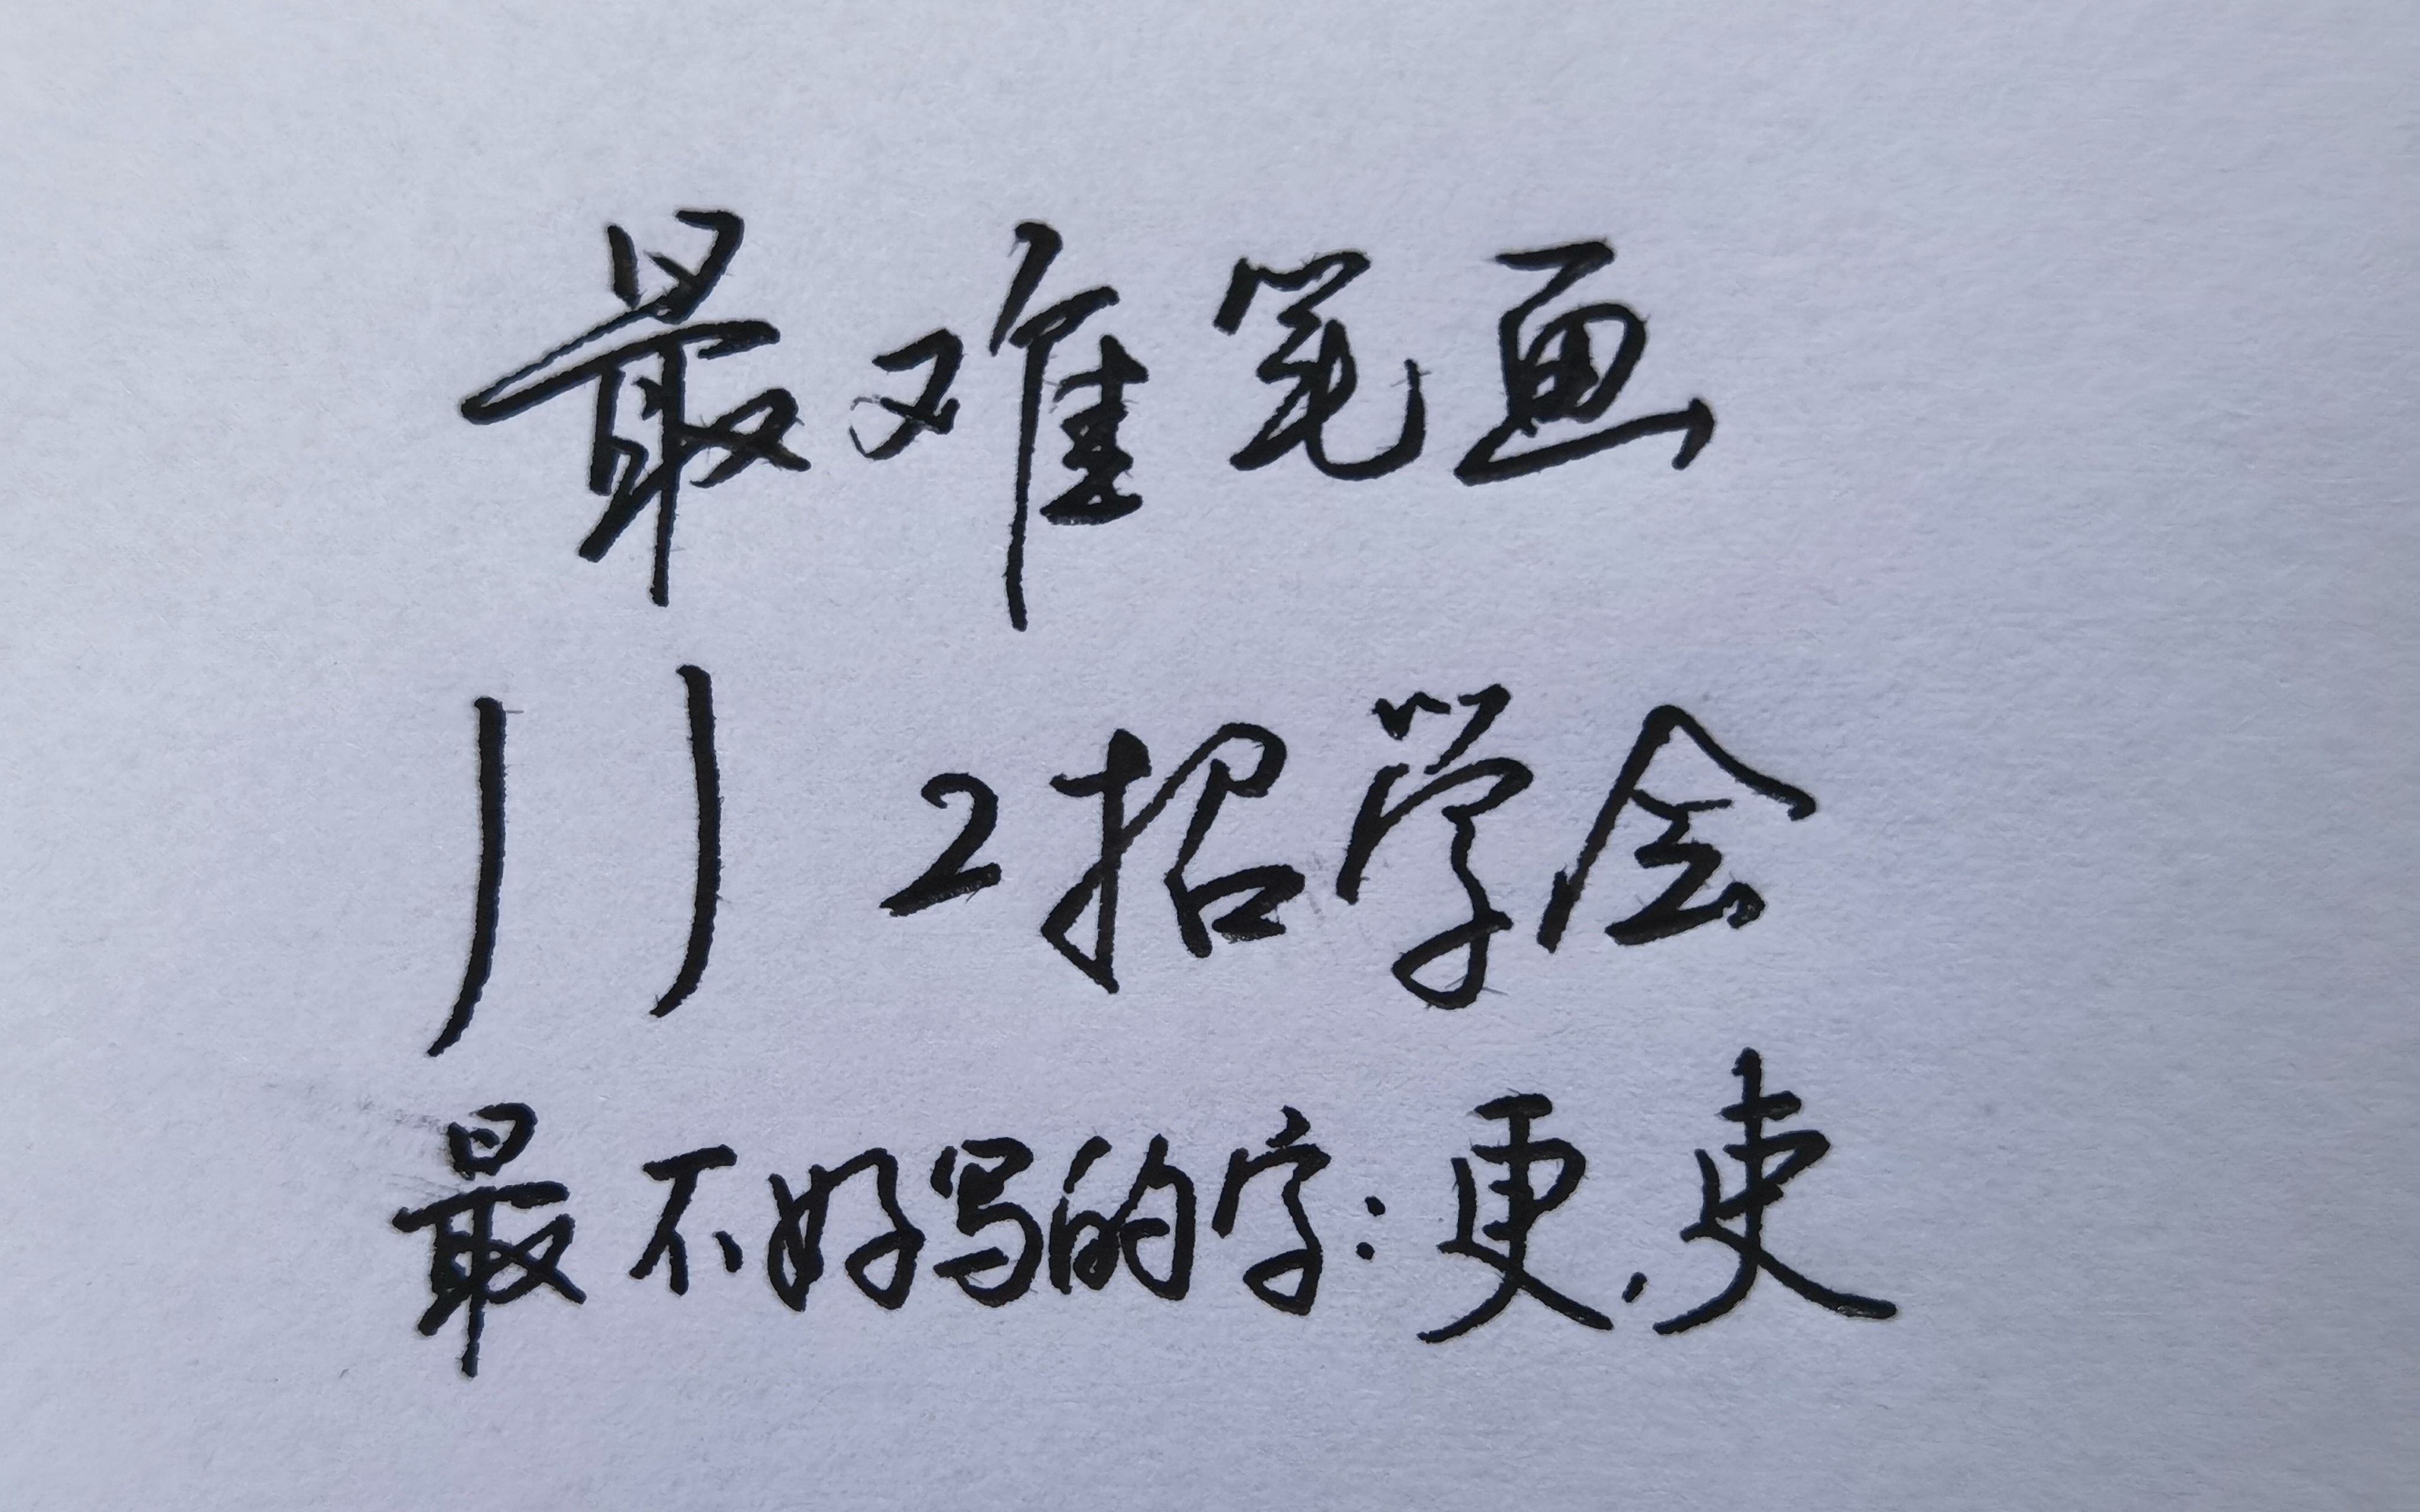 最难笔画
丿丿2招学会
最不好写的字:更,吏